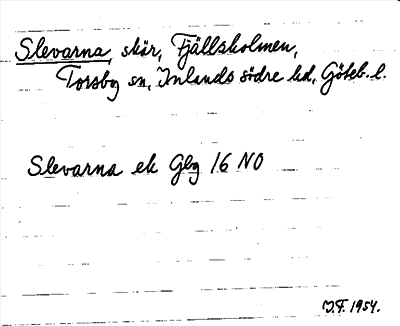 Slevarna, skär, Fjällsholmen,
Torsby sn, Inlands södre hd, Göteb. l.
Slevarna ek Gbg 16 NO
J.F. 1954.